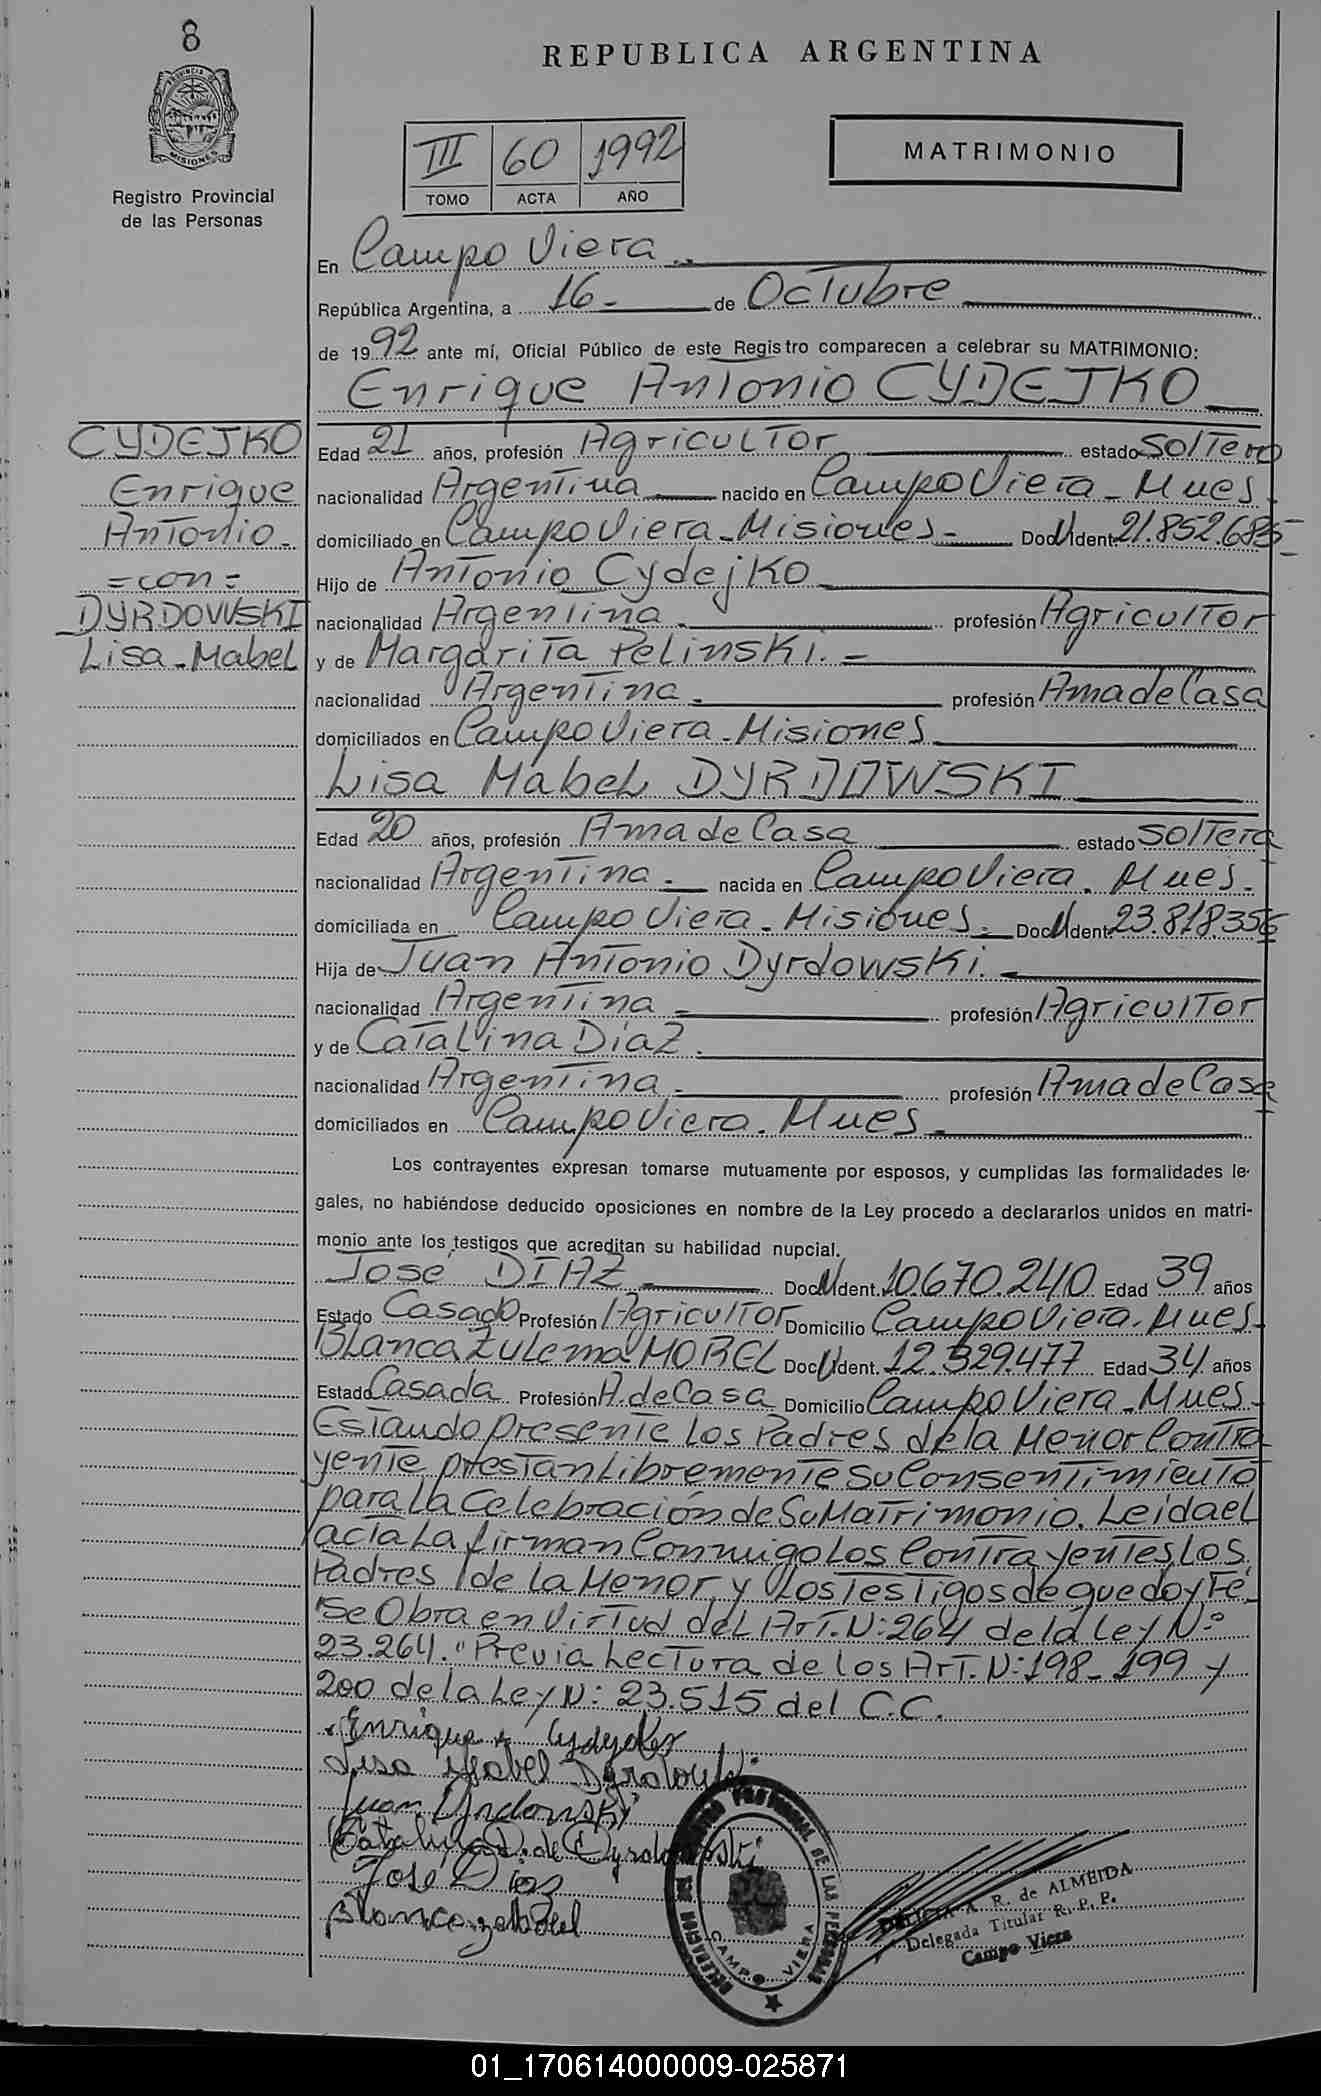 8
REPUBLICA ARGENTINA
PROVINCIA DE MISIONES
Registro Provincial
de las Personas
III 60 1992
TOMO ACTA AÑO
MATRIMONIO
En Campo Viera
República Argentina, a 16 de Octubre
de 1992 ante mí, Oficial Público de este Registro comparecen a celebrar su MATRIMONIO:
Enrique Antonio CYDEJKO
CYDEJKO
Enrique
Antonio
=con=
DYRDOWSKI
Lisa Mabel
Edad 21 años, profesión Agricultor estado soltero
nacionalidad Argentina nacido en Campo Viera - Mnes.
domiciliado en Campo Viera - Misiones - Doc. N Ident. 21.852.685
Hijo de Antonio Cydejko
nacionalidad Argentina profesión Agricultor
y de Margarita Pelinski.
nacionalidad Argentina profesión Ama de Casa
domiciliados en Campo Viera - Misiones
Lisa Mabel DYRDOWSKI
Edad 20 años, profesión Ama de Casa estado soltera
nacionalidad Argentina. nacida en Campo Viera. Mnes.
domiciliada en Campo Viera - Misiones. Doc. N Ident. 23.818.356
Hija de Juan Antonio Dyrdowski.
nacionalidad Argentina profesión Agricultor
y de Catalina Díaz.
nacionalidad Argentina profesión Ama de Casa
domiciliados en Campo Viera. Mnes.
Los contrayentes expresan tomarse mutuamente por esposos, y cumplidas las formalidades le-
gales, no habiéndose deducido oposiciones en nombre de la Ley procedo a declararlos unidos en matri-
monio ante los testigos que acreditan su habilidad nupcial.
José DIAZ Doc. N Ident. 10.670.240 Edad 39 años
Estado Casado Profesión Agricultor Domicilio Campo Viera. Mnes.
Blanca Zulema MOREL Doc. N Ident. 12.329.477 Edad 34 años
Estado Casada Profesión A. de Casa Domicilio Campo Viera - Mnes.
Estando presente los Padres de la Menor Contra
yente, prestan libremente su Consentimiento
para la Celebración de su Matrimonio. Leída el
acta la firman Conmigo los Contrayentes, los
Padres de la Menor, y los testigos de que doy Fé.
"Se Obra en Virtud del Art. N: 264 de la Ley Nº
23.264." Previa Lectura de los Art. N: 198-199 y
200 de la Ley N: 23.515 del C.C.
Enrique A Cydejko
Lisa Mabel Dyrdowski
Juan Dyrdowski
Catalina D. de Dyrdowski
José Diaz
Blanca Z Morel
DELEGACION DE REGISTRO PROVINCIAL DE LAS PERSONAS
CAMPO VIERA
A. R. de ALMEIDA
Delegada Titular R. P. P.
Campo Viera
01_170614000009-025871